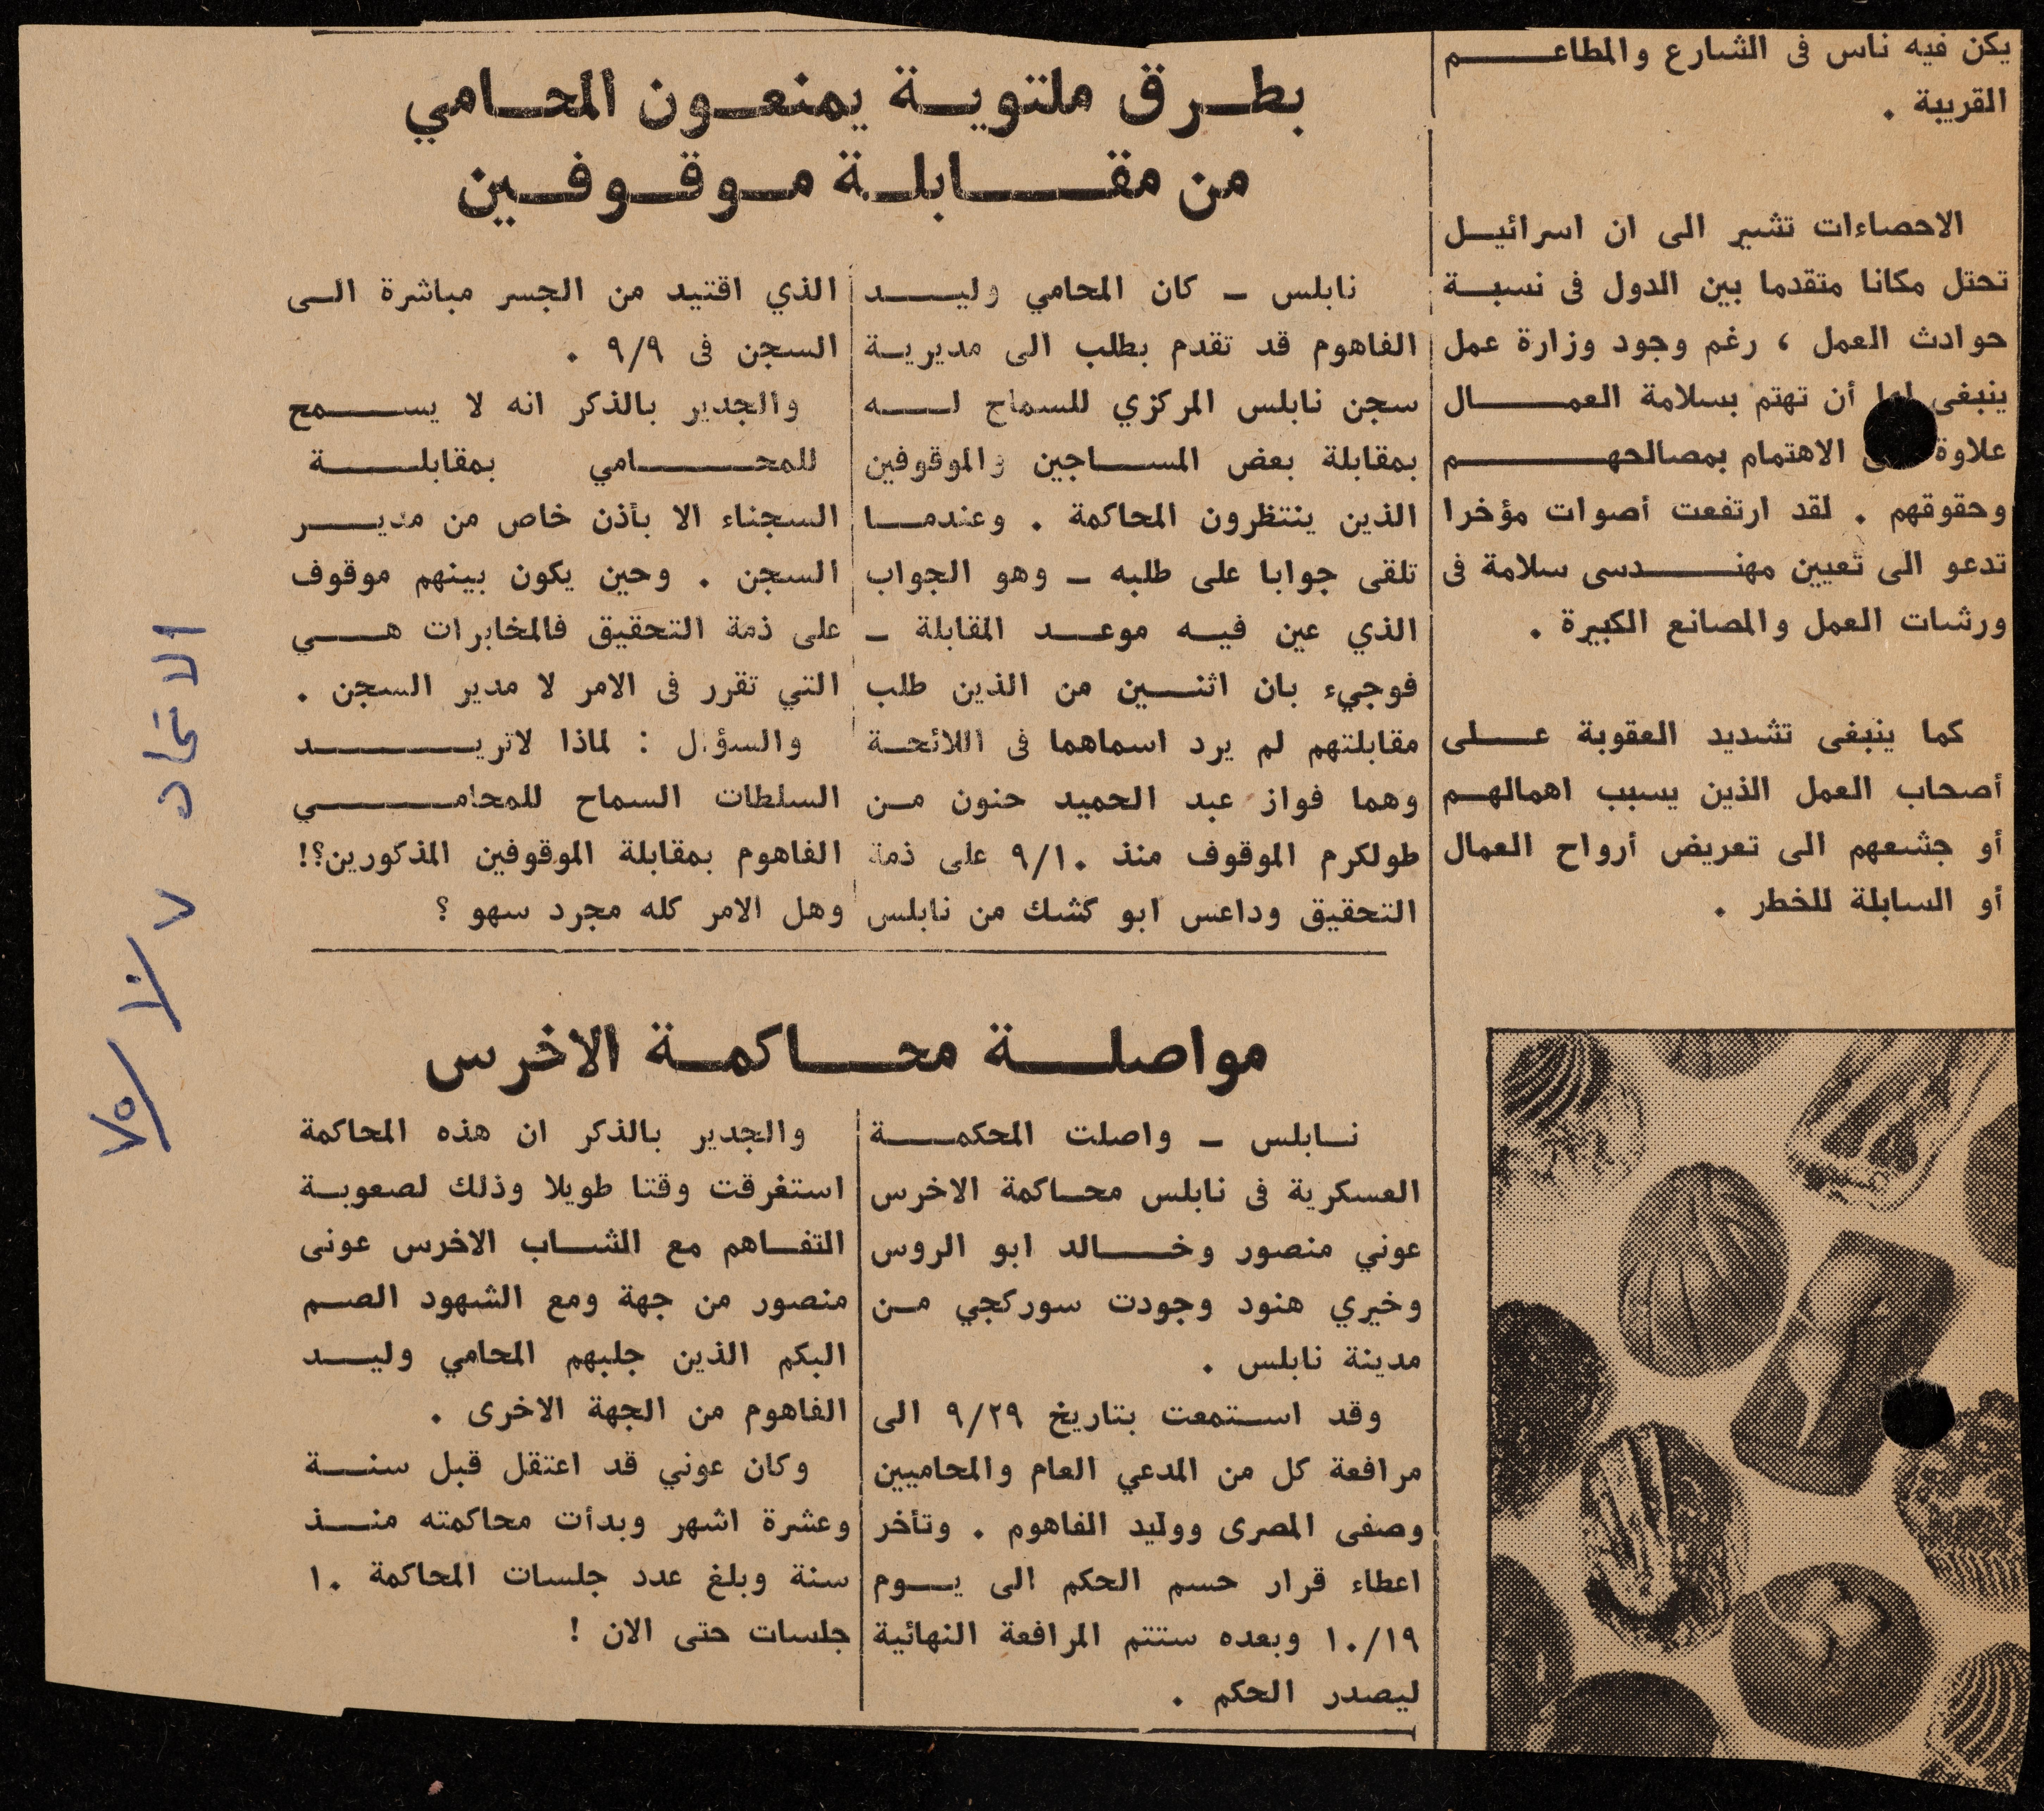 يكن فيه ناس فى الشارع والمطاعم
القريبة .
الاحصاءات تشير الى ان اسرائيل
تحتل مكانا متقدما بين الدول فى نسبة
حوادث العمل ، رغم وجود وزارة عمل
ينبغى لها أن تهتم بسلامة العمال
علاوة الاهتمام بمصالحهم
وحقوقهم . لقد ارتفعت أصوات مؤخرا
تدعو الى تعيين مهندسى سلامة فى
ورشات العمل والمصانع الكبيرة .
كما ينبغى تشديد العقوبة على
أصحاب العمل الذين يسبب اهمالهم
أو جشعهم الى تعريض أرواح العمال
أو السابلة للخطر .
بطرق ملتوية يمنعون المحامي
من مقابلة موقوفين
نابلس ـ كان المحامي وليد
الفاهوم قد تقدم بطلب الى مديرية
سجن نابلس المركزي للسماح له
بمقابلة بعض المساجين والموقوفين
الذين ينتظرون المحاكمة . وعندما
تلقى جوابا على طلبه ـ وهو الجواب
الذي عين فيه موعد المقابلة ـ
فوجيء بان اثنين من الذين طلب
مقابلتهم لم يرد اسماهما فى اللائحة
وهما فواز عبد الحميد حنون من
طولكرم الموقوف منذ ٩/١٠ على ذمة
التحقيق وداعس ابو كشك من نابلس
الذي اقتيد من الجسر مباشرة الى
السجن فى ٩/٩ .
والجدير بالذكر انه لا يسمح
للمحامي بمقابلة
السجناء الا بأذن خاص من مدير
السجن . وحين يكون بينهم موقوف
على ذمة التحقيق فالمخابرات هي
التي تقرر فى الامر لا مدير السجن .
والسؤال : لماذا لاتريد
السلطات السماح للمحامي
الفاهوم بمقابلة الموقوفين المذكورين؟!
وهل الامر كله مجرد سهو ؟
مواصلة محاكمة الاخرس
نابلس ـ واصلت المحكمة
العسكرية فى نابلس محاكمة الاخرس
عوني منصور وخالد ابو الروس
وخيري هنود وجودت سوركجي من
مدينة نابلس .
وقد استمعت بتاريخ ٩/٢٩ الى
مرافعة كل من المدعي العام والمحاميين
وصفى المصرى ووليد الفاهوم . وتأخر
اعطاء قرار حسم الحكم الى يوم
١٠/١٩ وبعده ستتم المرافعة النهائية
ليصدر الحكم .
والجدير بالذكر ان هذه المحاكمة
استغرقت وقتا طويلا وذلك لصعوبة
التفاهم مع الشاب الاخرس عونى
منصور من جهة ومع الشهود الصم
البكم الذين جلبهم المحامي وليد
الفاهوم من الجهة الاخرى .
وكان عوني قد اعتقل قبل سنة
وعشرة اشهر وبدأت محاكمته منذ
سنة وبلغ عدد جلسات المحاكمة ١٠
جلسات حتى الان !
الاتحاد ٧/١٠/٧٥